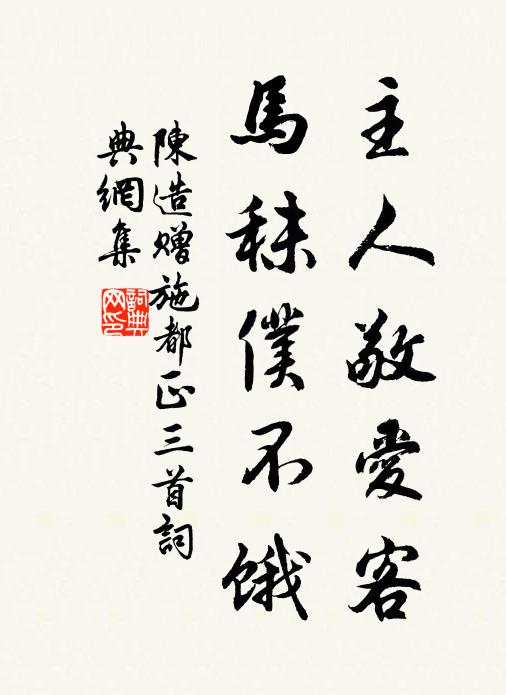 主人敬愛客
馬秣僕不餓
陳造贈施都正三首詞
典網集
詞典
网印